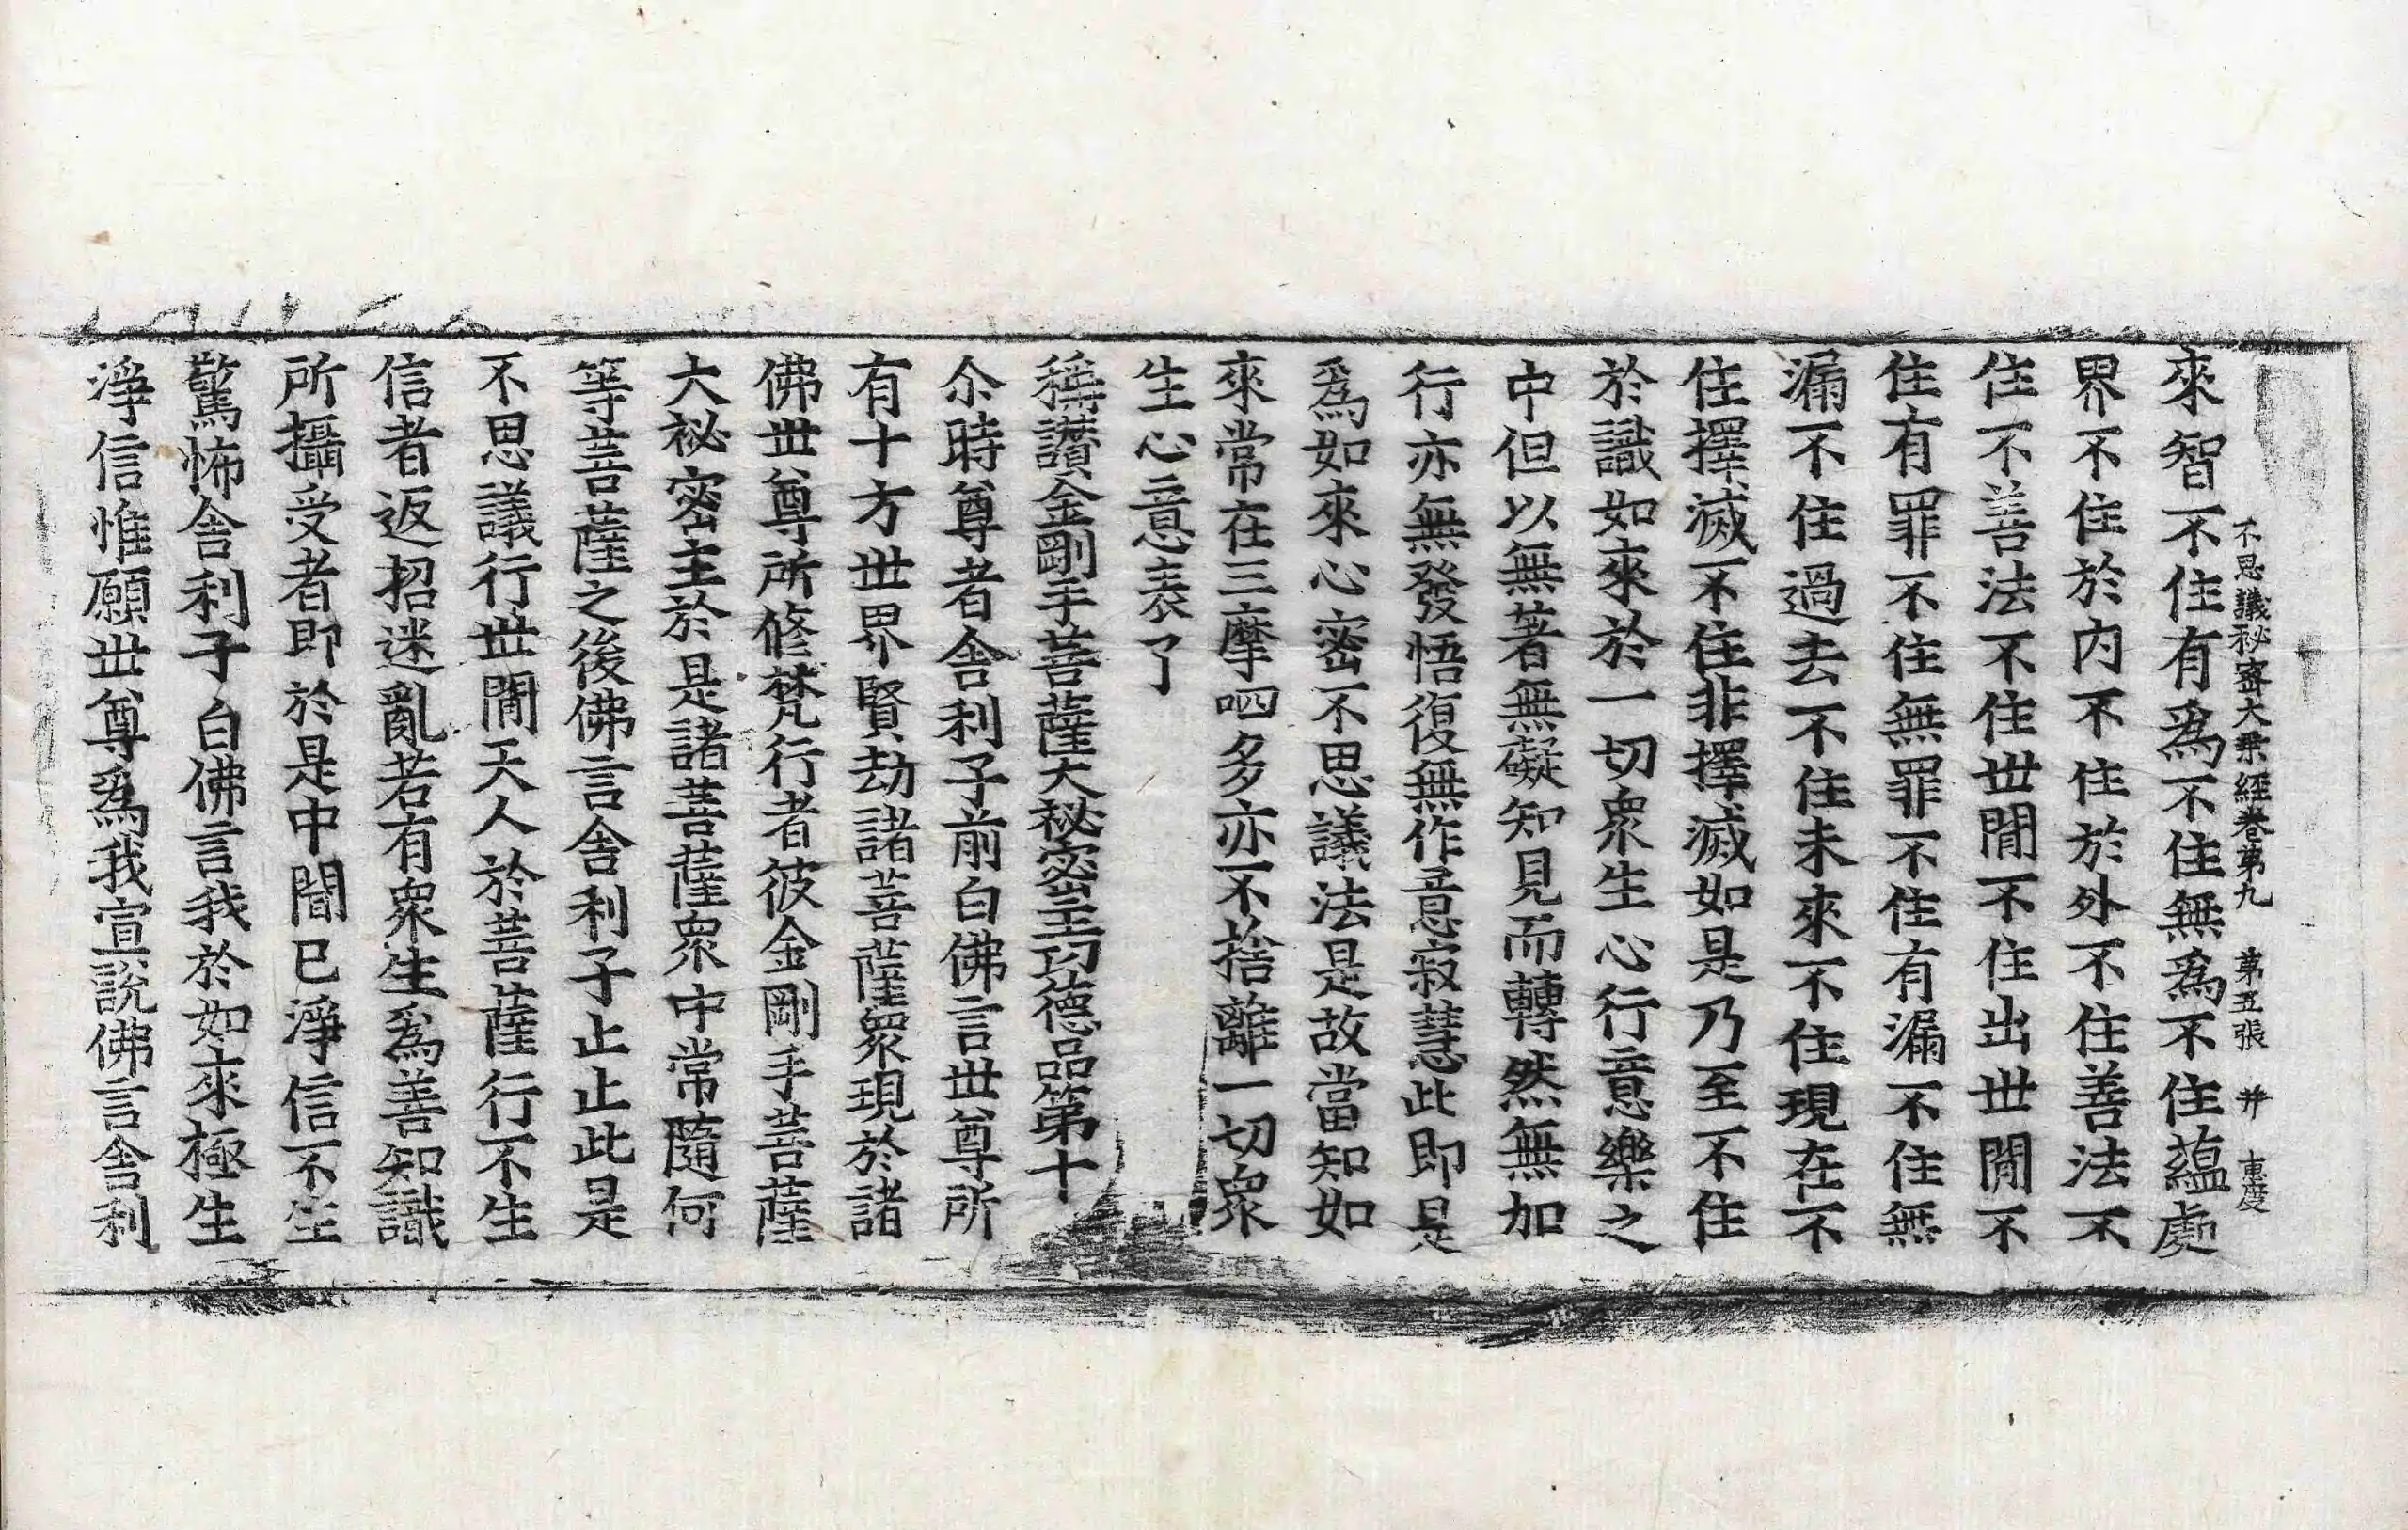 不思議秘密大乘經卷第九 第五張 并 重慶
來智不住有爲不住無爲不住蘊處
界不住於内不住於外不住善法不
住不善法不住世閒不住出世閒不
住有罪不住無罪不住有漏不住無
漏不住過去不住未來不住現在不
住擇滅不住非擇滅如是乃至不住
於識如來於一切衆生心行意樂之
中但以無著無礙知見而轉然無加
行亦無發悟復無作意寂慧此即是
爲如來心密不思議法是故當知如
來常在三摩呬多亦不捨離一切衆
生心意表了
稱讚金剛手菩薩大祕密主功德品第十
尒時尊者舎利子前白佛言世尊所
有十方世界賢劫諸菩薩衆現於諸
佛世尊所修梵行者彼金剛手菩薩
大祕密主於是諸菩薩衆中常隨何
等菩薩之後佛言舎利子止止此是
不思議行世閒天人於菩薩行不生
信者返招迷亂若有衆生爲善知識
所攝受者即於是中聞已淨信不生
驚怖舎利子白佛言我於如來極生
淨信惟願世尊爲我宣說佛言舎利